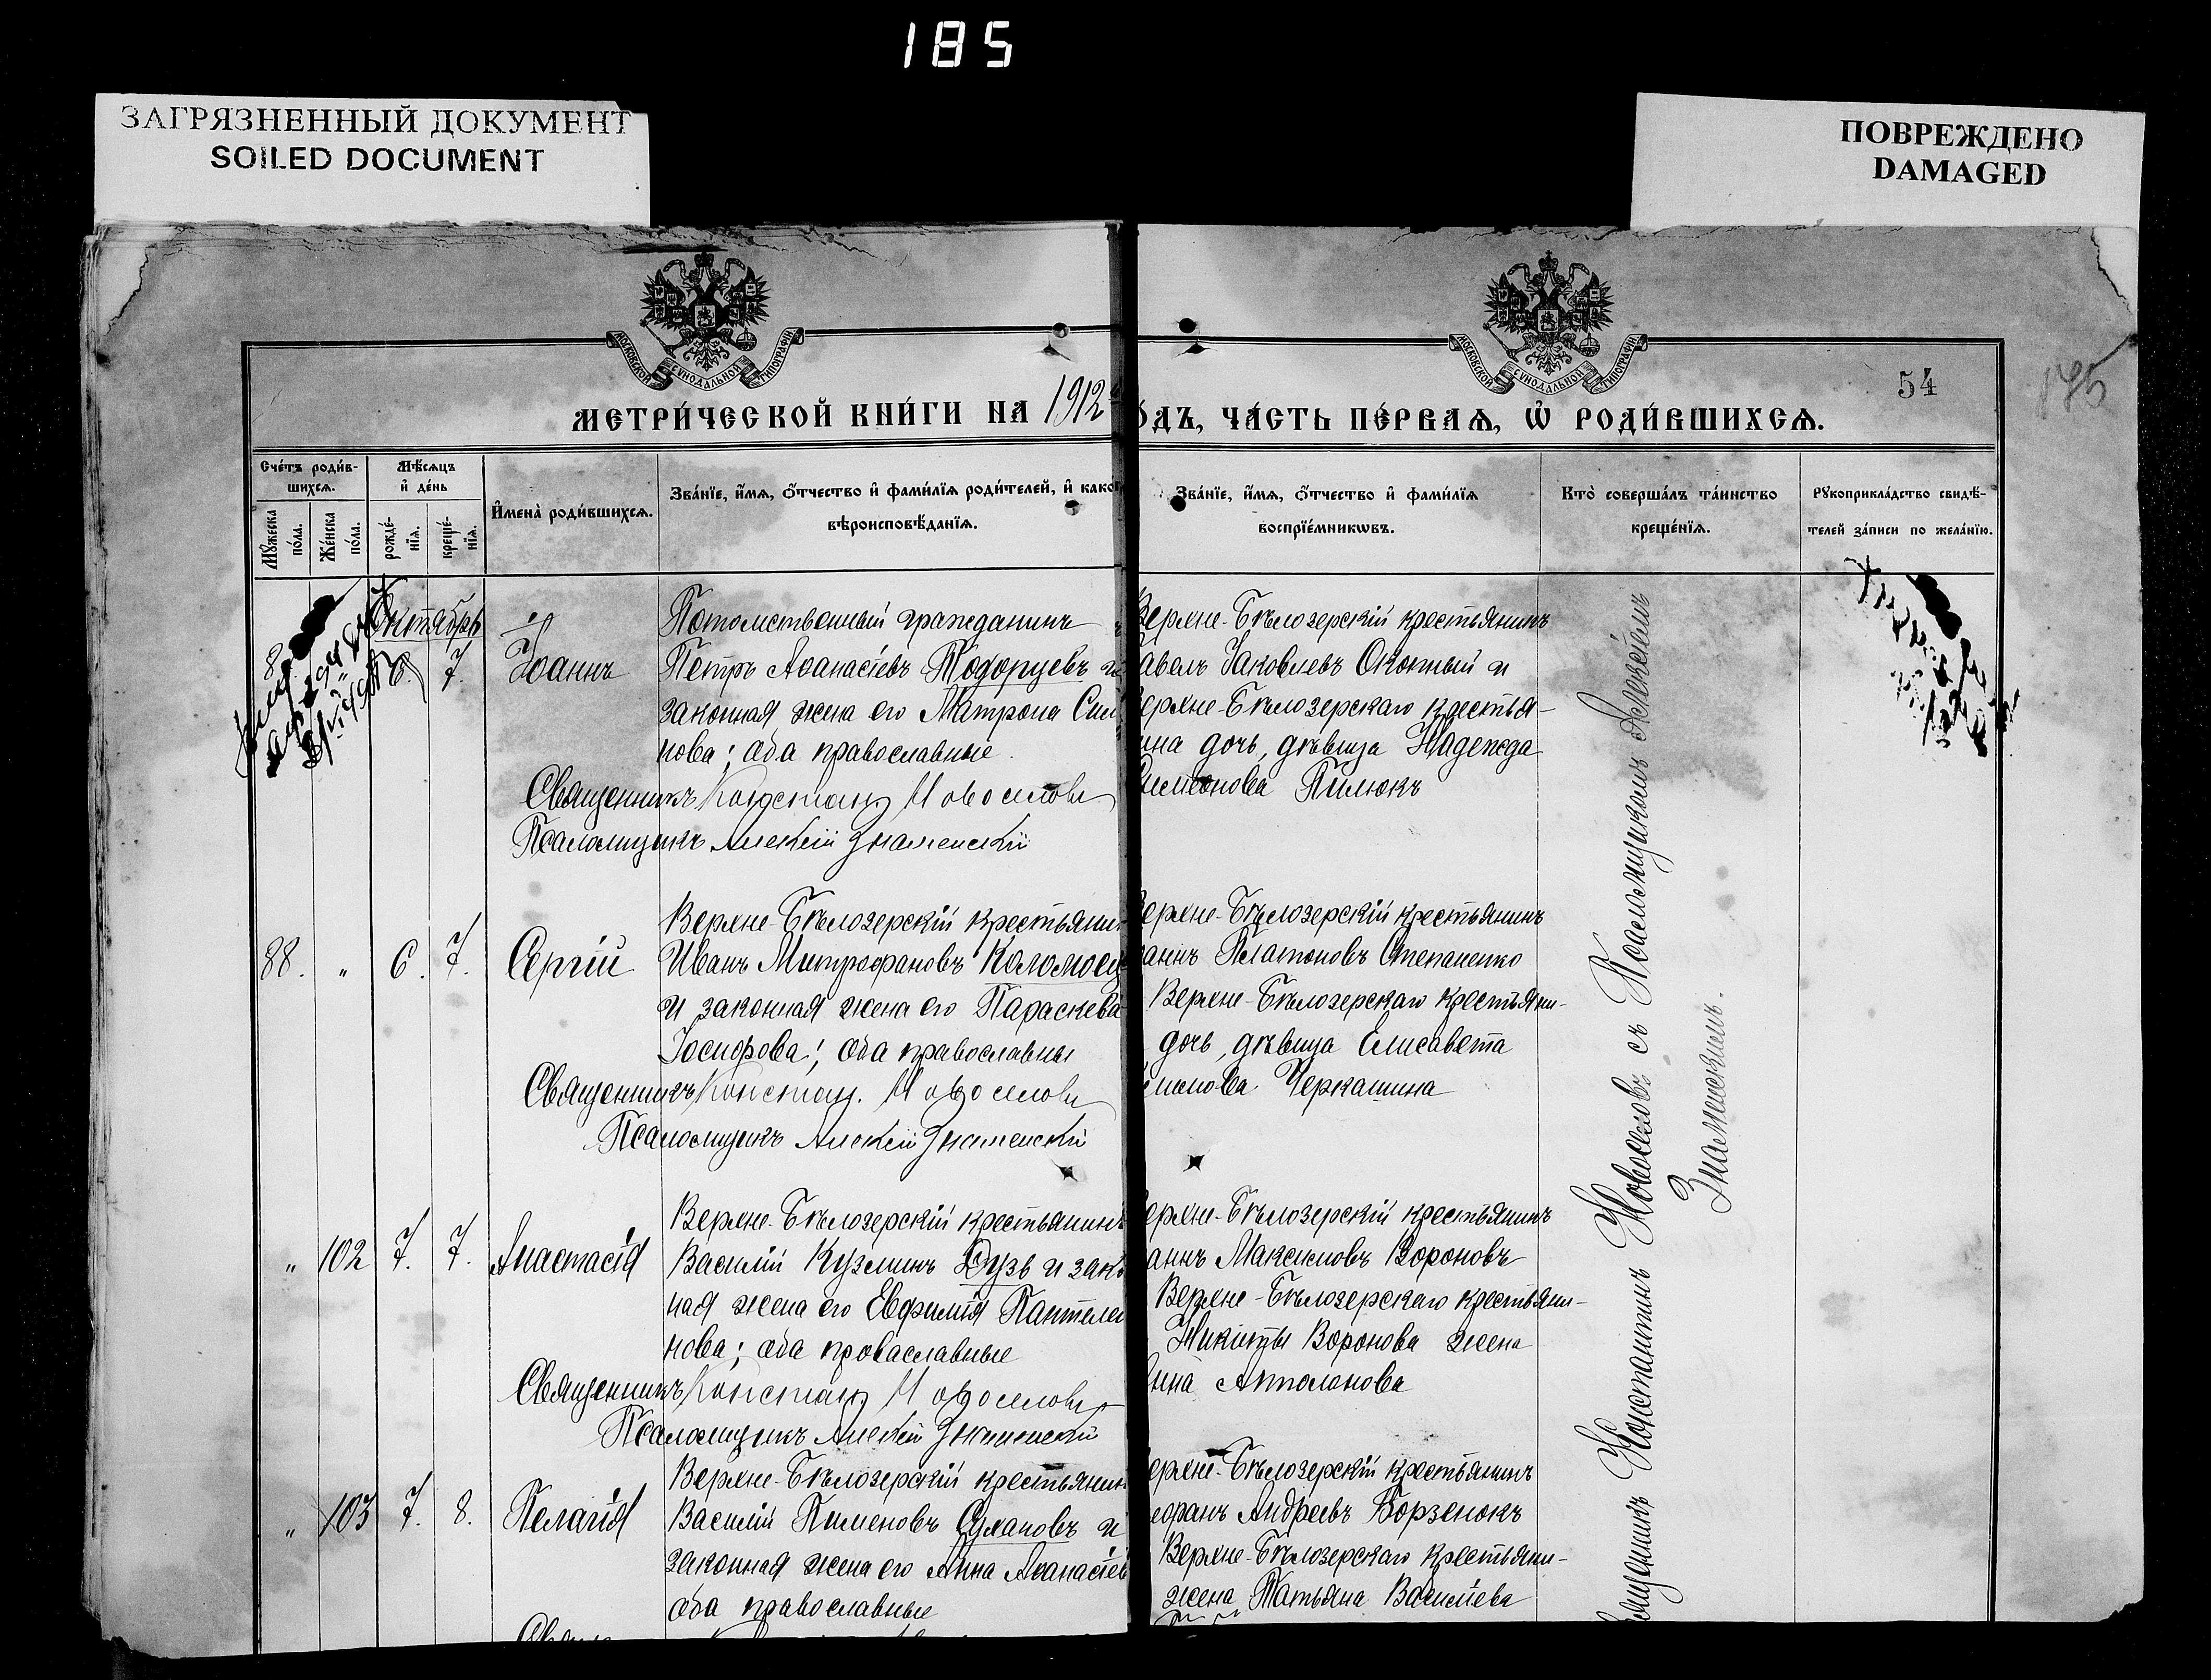 185
ЗАГРЯЗНЕННЫЙ ДОКУМЕНТ
SOILED DOCUMENT
ПОВРЕЖДЕНО
DAMAGED
МОСКОВСКОЙ СѴНОДАЛЬНОЙ ТИПОГРАФІИ
МОСКОВСКОЙ СѴНОДАЛЬНОЙ ТИПОГРАФІИ
54
175
МЕТРИ́ЧЕСКОЙ КНИ́ГИ НА 1912
ДЪ, ЧА́СТЬ ПЕ́РВАѦ, Ѡ҆ РОДИ́ВШИХСѦ.
Сче́тъ роди́в-
шихсѧ.
Мѣ́сѧцъ
и҆ де́нь
Мꙋ́жеска
по́ла.
Же́нска
по́ла.
рожде́-
нїѧ.
креще́-
нїѧ.
И҆мена̀ роди́вшихсѧ.
Зва́нїе, и҆́мѧ, ѻ҆́тчество и҆ фами́лїѧ роди́телей, и҆ како
вѣроисповѣ́данїѧ.
Зва́нїе, и҆́мѧ, ѻ҆́тчество и҆ фами́лїѧ
воспрїе́мникѡвъ.
Кто̀ соверша́лъ та́инство
креще́нїѧ.
Рꙋкоприкла́дство свидѣ́-
телей за́писи по жела́нїю.
Октябрь
6. 7. Іоаннъ
Потомственный гражданинъ
Петръ Аѳанасіевъ Тодорцевъ и
законная жена его Матрона Сим
нова; оба православные
Священникъ Констант Новоселовъ
Псаломщикъ Алексій Знаменскій
Верхне-Бѣлозерскій крестьянинъ
авелъ Іаковлевъ Окопный и
ерхне-Бѣлозерскаго крестья-
ина дочь, дѣвица Надежда
имеонова Пилюкъ
88. " 6. 7. Сергій
Верхне-Бѣлозерскій крестьяни
Иванъ Митрофановъ Коломоец
и законная жена его Параскева
Іосифова; оба православны
Священникъ Констан. Новоселовъ
Псаломщикъ Алексій Знаменскій
ерхне-Бѣлозерскій крестьянинъ
аннъ Платоновъ Степаненко
Верхне-Бѣлозерскаго крестьяни-
дочь, дѣвица Елисавета
Черкашина
" 102 7. 7. Анастасія
Верхне-Бѣлозерскій крестьянинъ
Василій Кузминъ Дузь и зак
ная жена его Евфимія Пантелеи
нова; оба православные
Священникъ Констант Новоселовъ
Псаломщикъ Алексій Знаменскій
ерхне-Бѣлозерскій крестьянинъ
аннъ Максимовъ Вороновъ
Верхне-Бѣлозерскаго крестьяни-
Никиты Воронова жена
нна
" 103 7. 8. Пелагія
Верхне-Бѣлозерскій крестьянин
Василій Пименовъ Сухановъ и
законная жена его Анна Аѳанасіев
оба православные
ерхне-Бѣлозерскій крестьянинъ
ефанъ Андреевъ Борзенокъ
Верхне-Бѣлозерскаго крестьяни-
жена Татьяна Василіева
ященникъ Константинъ Новоселовъ съ Псаломщикомъ Алексѣемъ
Знаменскимъ.